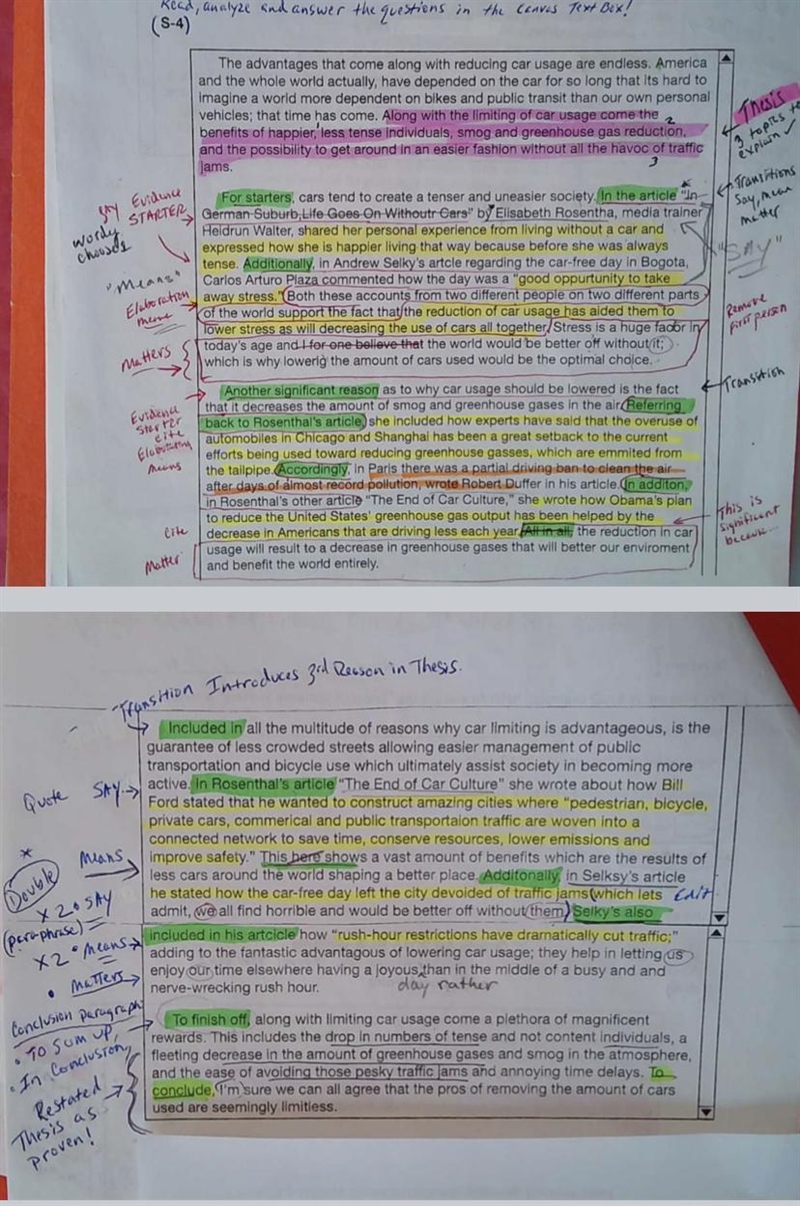 Read, analyze and answer the questions in the Canvas Text Box!
(S-4)
The advantages that come along with reducing car usage are endless. America
and the whole world actually, have depended on the car for so long that its hard to
imagine a world more dependent on bikes and public transit than our own personal
vehicles; that time has come. Along with the limiting of car usage come the
benefits of happier, less tense individuals, smog and greenhouse gas reduction,
and the possibility to get around in an easier fashion without all the havoc of traffic
jams.
1
2
3
Thesis
3 topics to
explain ✓
For starters, cars tend to create a tenser and uneasier society. In the article "In
German Suburb,Life Goes On Withoutr Cars" by Elisabeth Rosentha, media trainer
Heidrun Walter, shared her personal experience from living without a car and
expressed how she is happier living that way because before she was always
tense. Additionally, in Andrew Selky's artcle regarding the car-free day in Bogota,
Carlos Arturo Plaza commented how the day was a "good oppurtunity to take
away stress." Both these accounts from two different people on two different parts
of the world support the fact that the reduction of car usage has aided them to
lower stress as will decreasing the use of cars all together. Stress is a huge facor in
today's age and I for one believe that the world would be better off without it;
which is why lowerig the amount of cars used would be the optimal choice.
Evidence
STARTER
wordy
choices
"Means"
Elaboration
means
Matters
Transitions
Say, mean
matter
"SAY"
Remove
first person
Another significant reason as to why car usage should be lowered is the fact
that it decreases the amount of smog and greenhouse gases in the air. Referring
back to Rosenthal's article, she included how experts have said that the overuse of
automobiles in Chicago and Shanghai has been a great setback to the current
efforts being used toward reducing greenhouse gasses, which are emmited from
the tailpipe. Accordingly, in Paris there was a partial driving ban to clean the air
after days of almost record pollution, wrote Robert Duffer in his article. In additon,
in Rosenthal's other article "The End of Car Culture," she wrote how Obama's plan
to reduce the United States' greenhouse gas output has been helped by the
decrease in Americans that are driving less each year. All in all, the reduction in car
usage will result to a decrease in greenhouse gases that will better our enviroment
and benefit the world entirely.
Evidence
starter
cite
Elaborating
means
cite
Matter
Transition
This is
significant
because...
Transition Introduces 3rd Reason in Thesis.
Included in all the multitude of reasons why car limiting is advantageous, is the
guarantee of less crowded streets allowing easier management of public
transportation and bicycle use which ultimately assist society in becoming more
active. In Rosenthal's article "The End of Car Culture" she wrote about how Bill
Ford stated that he wanted to construct amazing cities where "pedestrian, bicycle,
private cars, commerical and public transportaion traffic are woven into a
connected network to save time, conserve resources, lower emissions and
improve safety." This here shows a vast amount of benefits which are the results of
less cars around the world shaping a better place. Additonally, in Selksy's article
he stated how the car-free day left the city devoided of traffic jams (which lets
admit, we all find horrible and would be better off without them) Selky's also
included in his artcicle how "rush-hour restrictions have dramatically cut traffic;"
adding to the fantastic advantagous of lowering car usage; they help in letting us
enjoy our time elsewhere having a joyous than in the middle of a busy and and
nerve-wrecking rush hour.
day rather
Edit
Quote SAY
Means
Double
x 2 SAY
(paraphrase)
x 2 Means
Matters
To finish off, along with limiting car usage come a plethora of magnificent
rewards. This includes the drop in numbers of tense and not content individuals, a
fleeting decrease in the amount of greenhouse gases and smog in the atmosphere,
and the ease of avoiding those pesky traffic jams and annoying time delays. To
conclude, I'm sure we can all agree that the pros of removing the amount of cars
used are seemingly limitless.
Conclusion paragraph
To sum up,
In Conclusion,
Restated
Thesis as
proven!